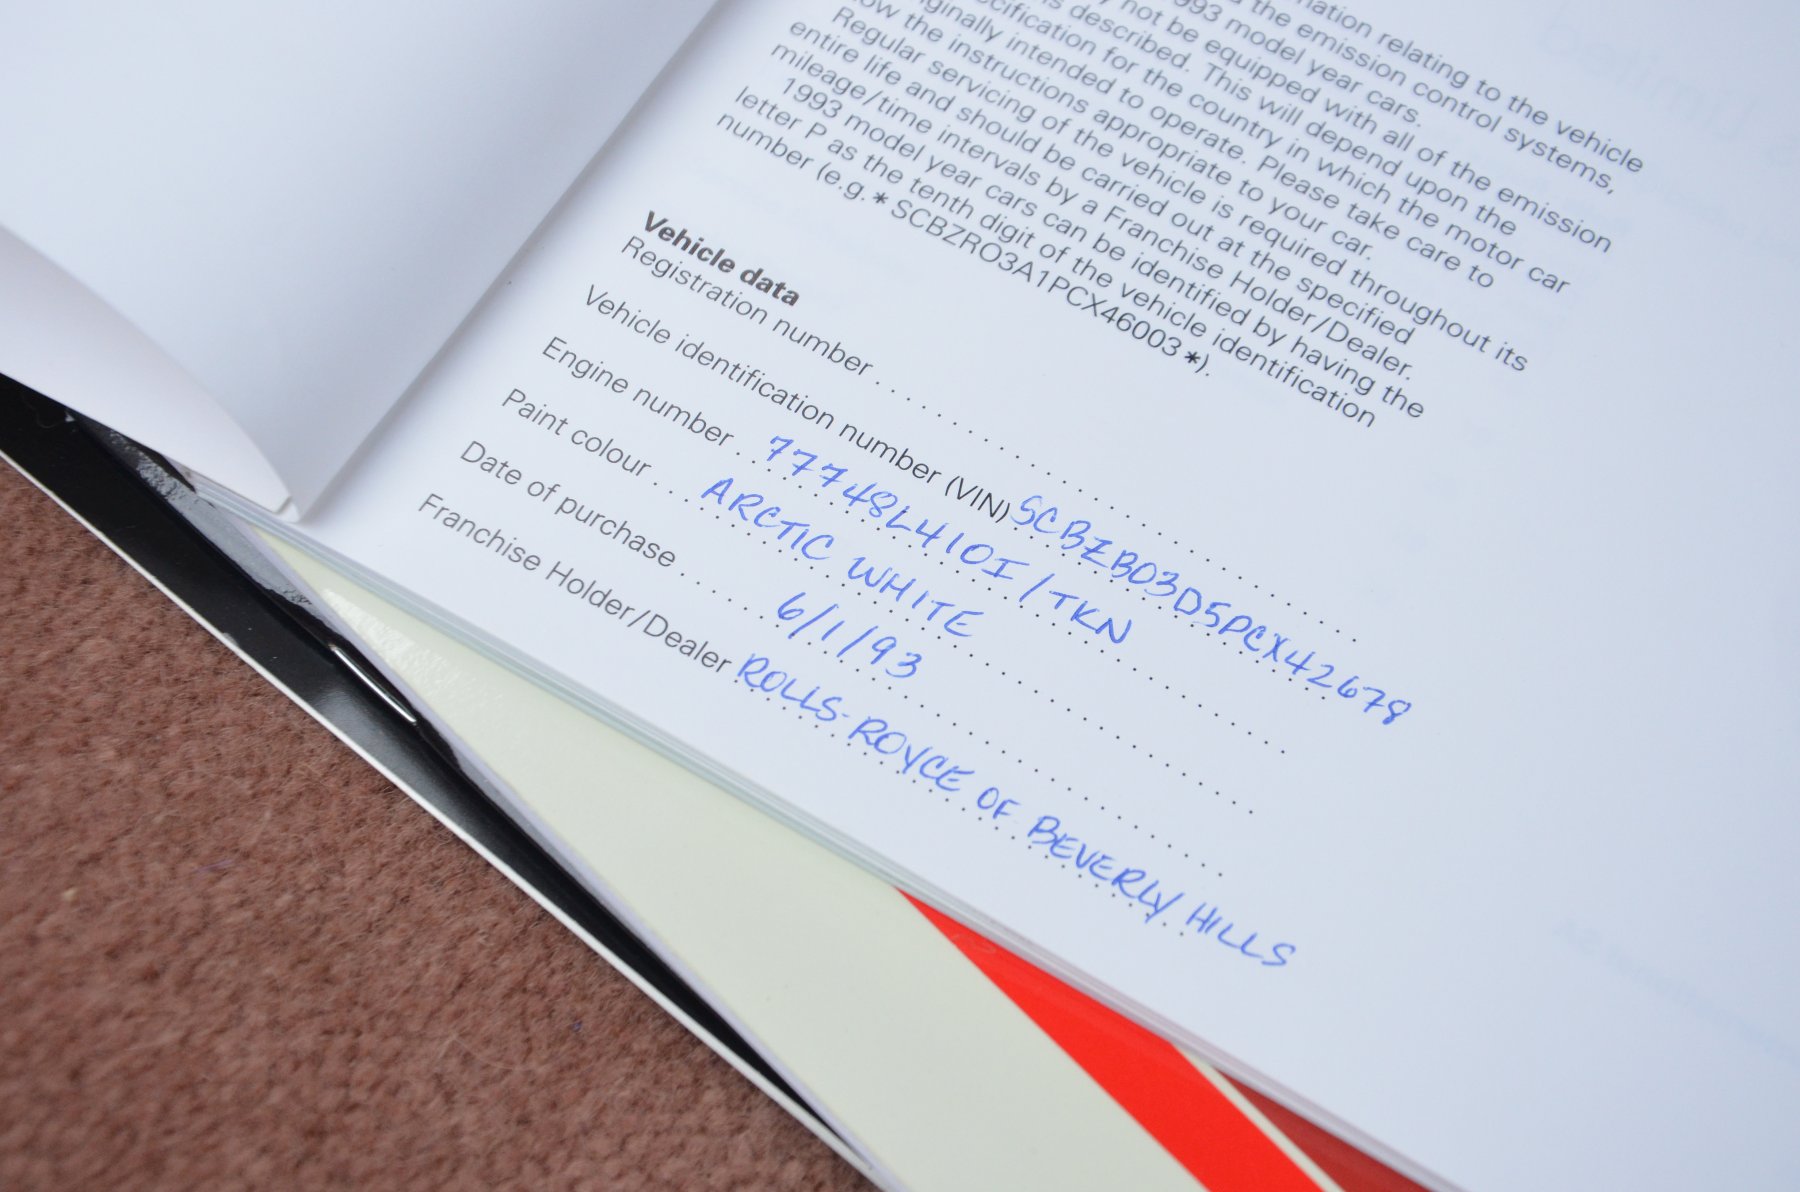 mation relating to the vehicle
d the emission control systems,
1993 model year cars.
y not be equipped with all of the emission
s described. This will depend upon the
ecification for the country in which the motor car
iginally intended to operate. Please take care to
low the instructions appropriate to your car.
Regular servicing of the vehicle is required throughout its
entire life and should be carried out at the specified
mileage/time intervals by a Franchise Holder/Dealer.
1993 model year cars can be identified by having the
letter P as the tenth digit of the vehicle identification
number (e.g. * SCBZRO3A1PCX46003 *).
Vehicle data
Registration number
Vehicle identification number (VIN) SCBZB03D5PCX42678
Engine number 77748L410I/TKN
Paint colour ARCTIC WHITE
Date of purchase 6/1/93
Franchise Holder/Dealer ROLLS-ROYCE OF BEVERLY HILLS